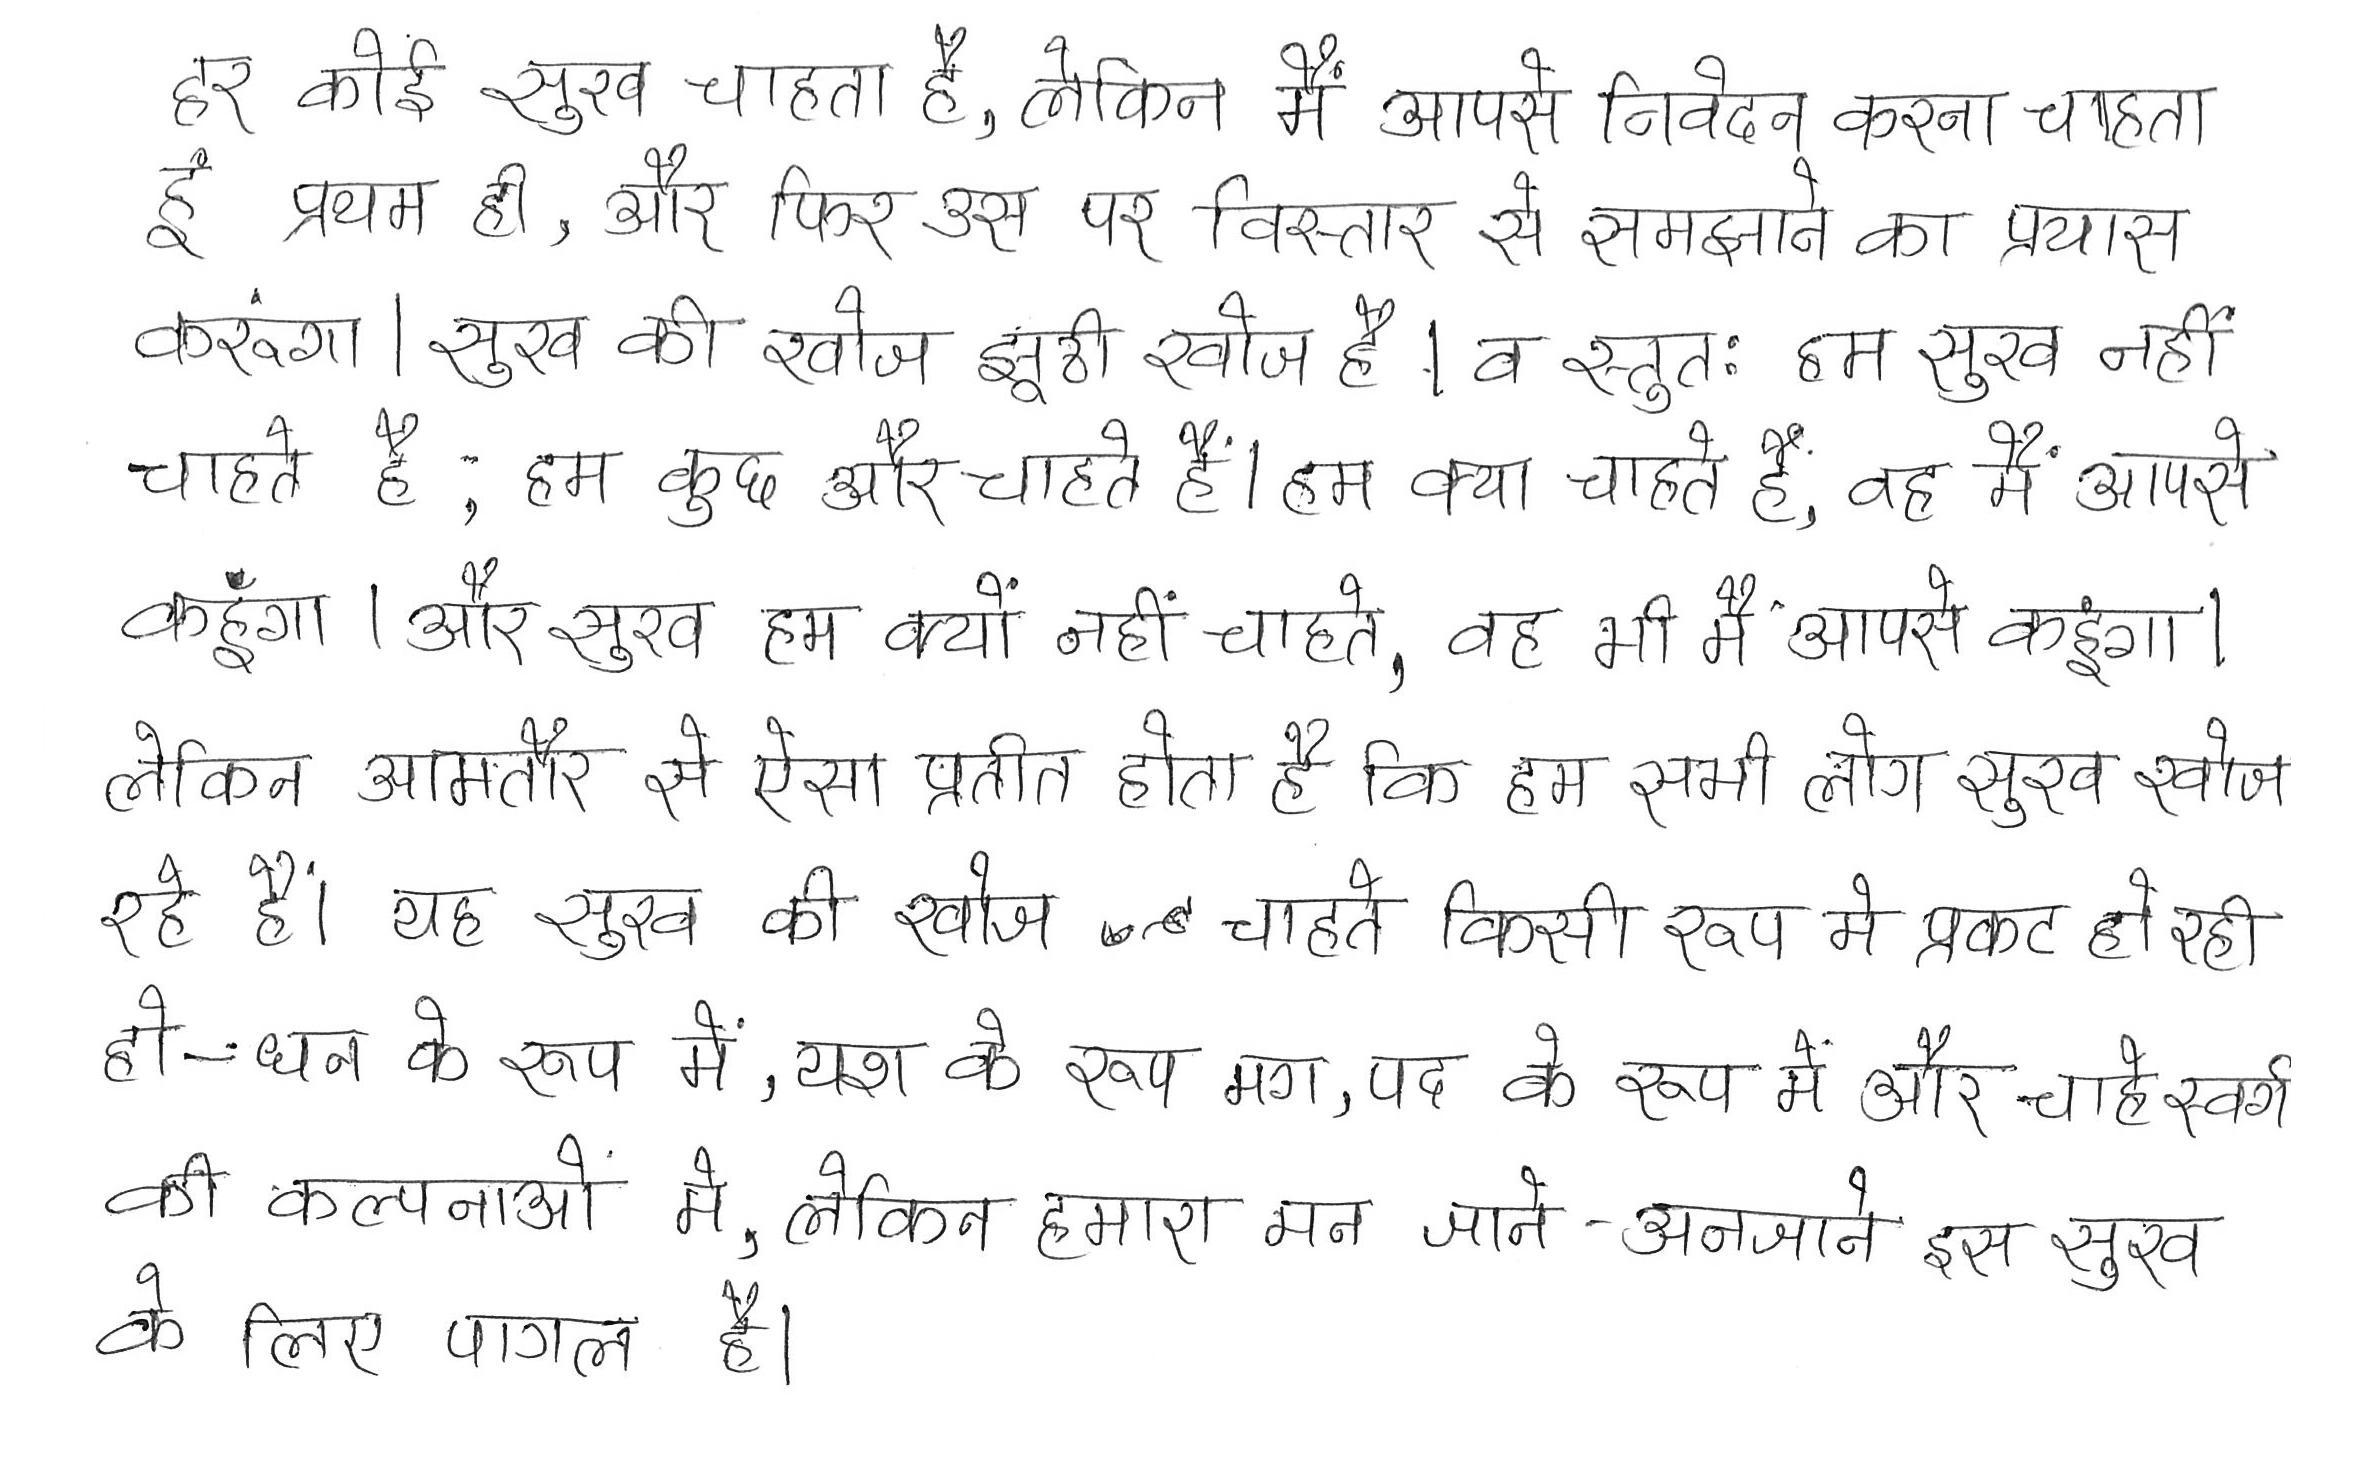 हर कोई सुख चाहता है, लेकिन मैं आपसे निवेदन करना चाहता
हूँ प्रथम ही, और फिर उस पर विस्तार से समझाने का प्रयास
करूंगा। सुख की खोज झूठी खोज है। व स्तुतः हम सुख नहीं
चाहते है ; हम कुछ और चाहते हैं। हम क्या चाहते हैं, वह मैं आपसे
कहूँगा। और सुख हम क्यों नहीं चाहते, वह भी मैं आपसे कहूंगा।
लेकिन आमतौर से ऐसा प्रतीत होता है कि हम सभी लोग सुख खोज
रहे हैं। यह सुख की खोज चाहते किसी रूप मे प्रकट हो रही
हो - धन के रूप में, यश के रूप मग, पद के रूप में और चाहे स्वर्ग
की कल्पनाओं मे, लेकिन हमारा मन जाने - अनजाने इस सुख
के लिए पागल है।